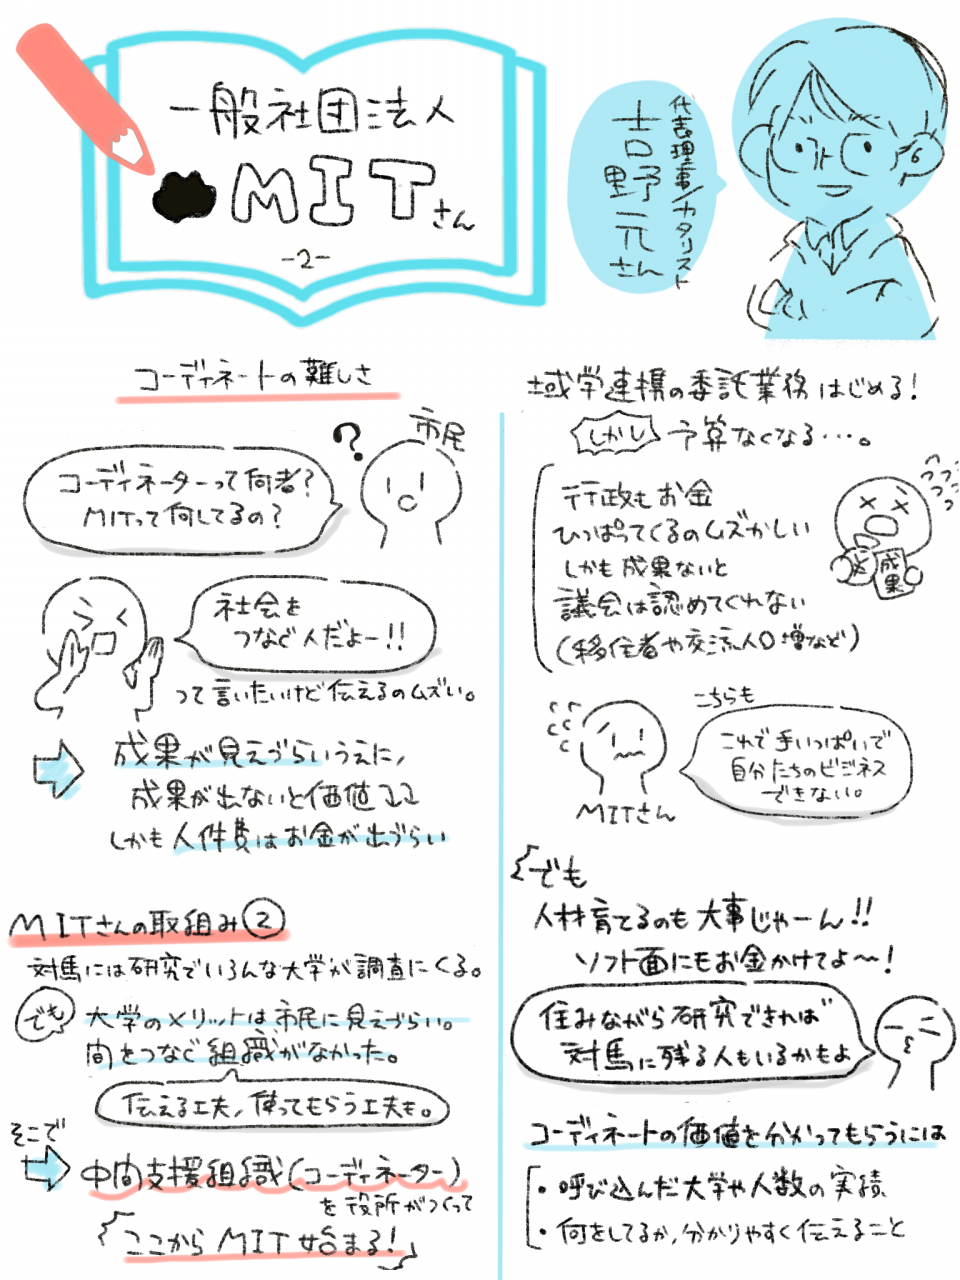 一般社団法人
MITさん
-2-
代表理事/カタリスト
吉野元さん
コーディネートの難しさ
市民
?
コーディネーターって何者?
MITって何してるの?
社会を
つなぐ人だよー!!
って言いたいけど伝えるのムズい。
成果が見えづらいうえに,
成果が出ないと価値ココ
しかも人件費はお金が出づらい
MITさんの取組み②
対馬には研究でいろんな大学が調査にくる。
でも
大学のメリットは市民に見えづらい。
間をつなぐ組織がなかった。
伝える工夫,使ってもらう工夫も。
そこで
中間支援組織(コーディネーター)
を役所がつくって
ここからMIT始まる!
域学連携の委託業務はじめる!
しかし
予算なくなる…。
行政もお金
ひっぱってくるのムズかしい
しかも成果ないと
議会は認めてくれない
(移住者や交流人口増など)
フフフフフフ
成果
こちらも
これで手いっぱいで
自分たちのビジネス
できない。
MITさん
でも
人材育てるのも大事じゃーん!!
ソフト面にもお金かけてよ〜!
住みながら研究できれば
対馬に残る人もいるかもよ
コーディネートの価値を分かってもらうには
・呼び込んだ大学や人数の実績
・何をしてるか,分かりやすく伝えること